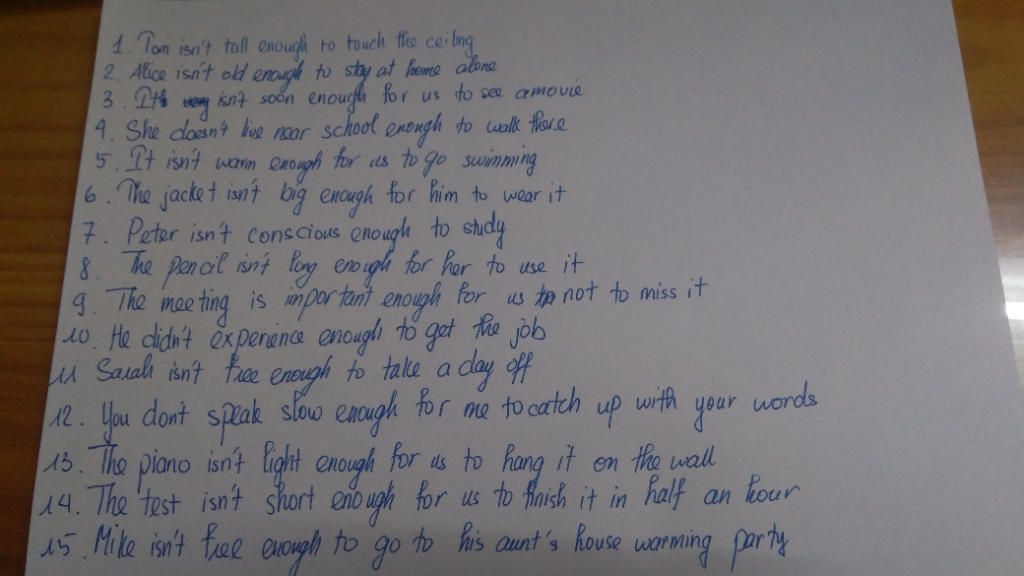 1. Tom isn't tall enough to touch the ceiling
2. Alice isn't old enough to stay at home alone
3. It isn't soon enough for us to see a movie
4. She doesn't live near school enough to walk there
5. It isn't warm enough for us to go swimming
6. The jacket isn't big enough for him to wear it
7. Peter isn't conscious enough to study
8. The pencil isn't long enough for her to use it
9. The meeting is important enough for us not to miss it
10. He didn't experience enough to get the job
11 Sarah isn't free enough to take a day off
12. You don't speak slow enough for me to catch up with your words
13. The piano isn't light enough for us to hang it on the wall
14. The test isn't short enough for us to finish it in half an hour
15. Mike isn't free enough to go to his aunt's house warming party